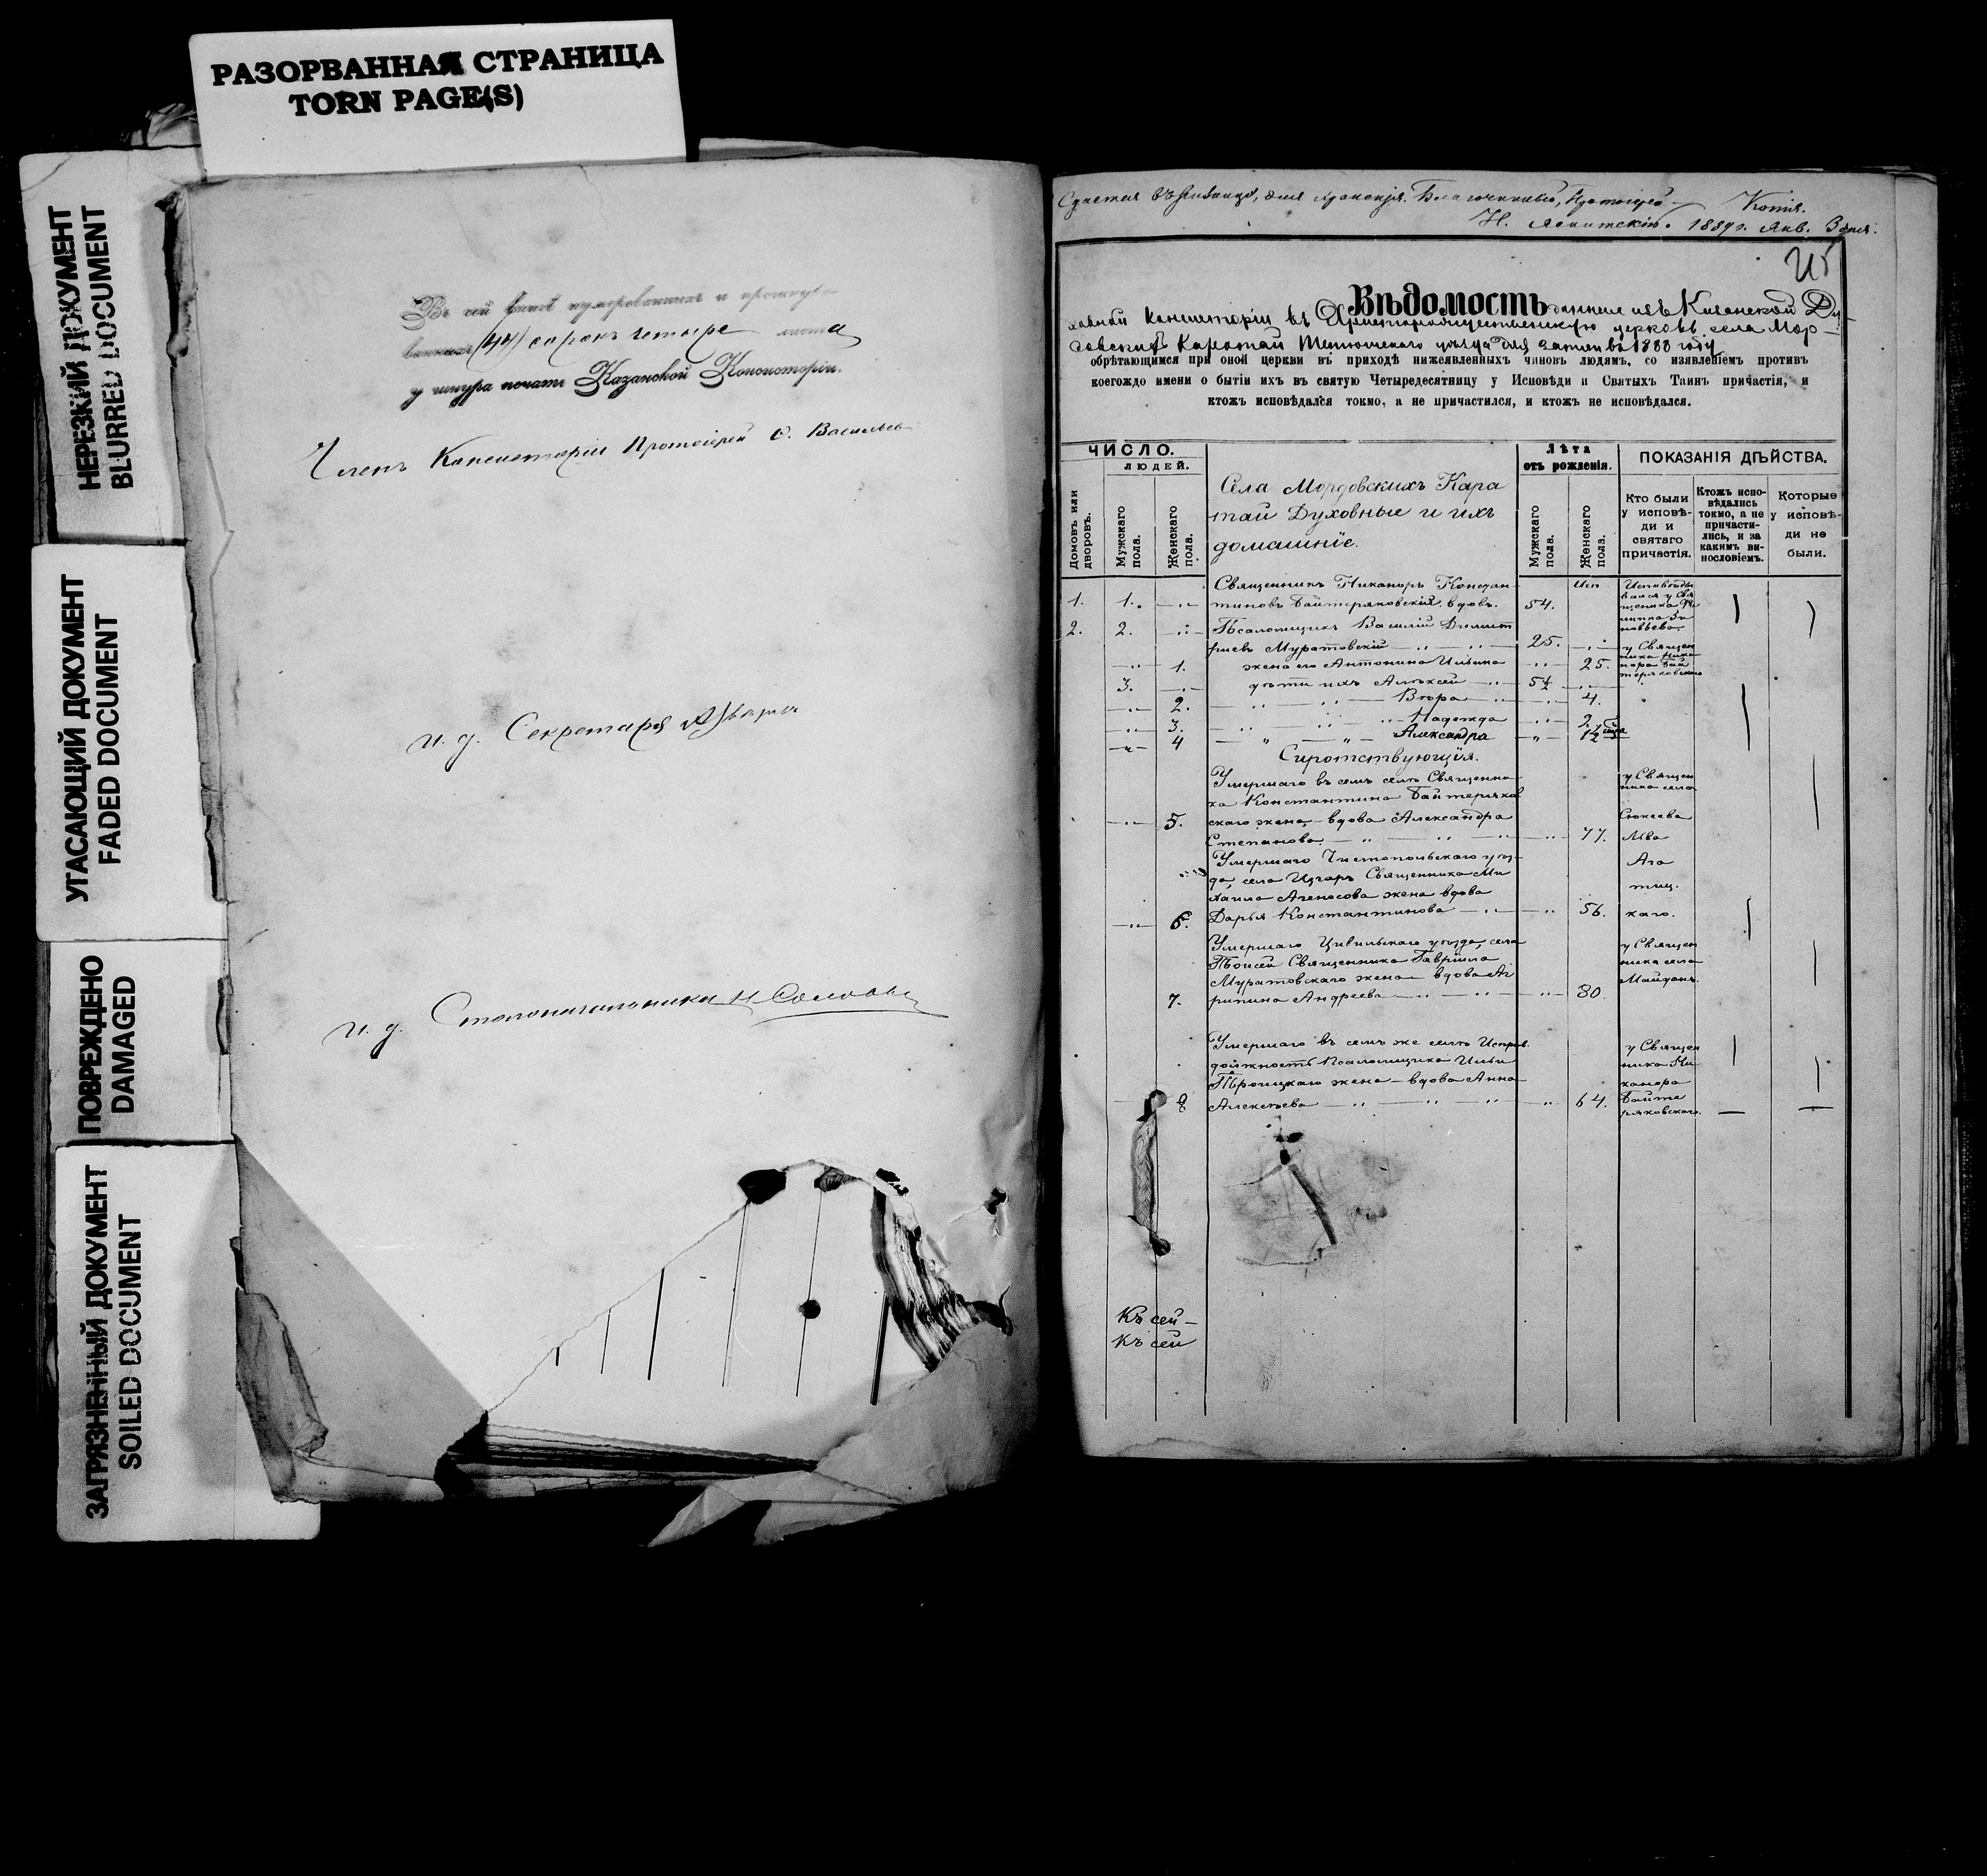 РАЗОРВАННАЯ СТРАНИЦА
TORN PAGE(S)
НЕРЕЗКИЙ ДОКУМЕНТ
BLURRED DOCUMENT
УГАСАЮЩИЙ ДОКУМЕНТ
FADED DOCUMENT
ПОВРЕЖДЕНО
DAMAGED
ЗАГРЯЗНЕННЫЙ ДОКУМЕНТ
SOILED DOCUMENT
Въ сей книгѣ нумерованныхъ и прошнуро-
ванныхъ (44) сорокъ четыре листа
у шнура печать Казанской Консисторіи.
Членъ Консисторіи Протоіерей
и. д. Секретаря
и. д. Столоначальника Н.
для храненія. Благочинный, Протоіерей
Копія.
Н. 1889 г. Янв. 3 дня.
Вѣдомость данная изъ Казанской Ду-
ховной Консисторіи въ церковь села Мор-
довскихъ Каратай Тетюшскаго уѣзда для записи въ 1888 году
обрѣтающимся при оной церкви въ приходѣ нижеявленныхъ чиновъ людямъ, со изявленіемъ противъ
коегождо имени о бытіи ихъ въ святую Четыредесятницу у Исповѣди и Святыхъ Таинъ причастія, и
ктожъ исповѣдался токмо, а не причастился, и ктожъ не исповѣдался.
ЧИСЛО.
ЛЮДЕЙ.
Домовъ или дворовъ.
Мужскаго пола.
Женскаго пола.
Села Мордовскихъ Кара
тай Духовные и ихъ
домашніе.
Лѣта
отъ рожденія.
Мужскаго пола.
Женскаго пола.
ПОКАЗАНІЯ ДѢЙСТВА.
Кто были у исповѣ-
ди и
святаго
причастія.
Ктожъ испо-
вѣдались
токмо, а не
причасти-
лись, и за
какимъ ви-
нословіемъ.
Которые
у исповѣ-
ди не
были.
Священникъ Никаноръ Констан
1. 1. тиновъ Байтеряковскій вдовъ. 54.
2. 2. Псаломщикъ Василій Димит
ріевъ Муратовскій 25. у Священ
1. жена его Антонина Ильина 25.
3. дѣти ихъ Алексѣй 5½
2. Вѣра 4.
3. Надежда 2.
4 Александра
Сиротствующія.
Умершаго въ семъ селѣ Священни у Священ
ка Константина Байтеряков ника села
5. скаго жена вдова Александра Сюкеева
Степанова 77. Льва
Умершаго Чистопольскаго уѣз- Ага
да, села Изгаръ Священника Ми тиц.
хаила жена вдова
6. Дарья Константинова 56. каго.
Умершаго Цивильскаго уѣзда, села у Священ
Священника Гавріила ника села
Муратовскаго жена вдова Аг Майданъ.
7. рипина Андреева 80.
Умершаго въ семъ же селѣ Исправ. у Священ
должность Псаломщика Ильи ника Ни
Троицкаго жена вдова Анна канора
8 Алексѣева 64. Байте
ряковскаго.
Къ сей
Къ сей